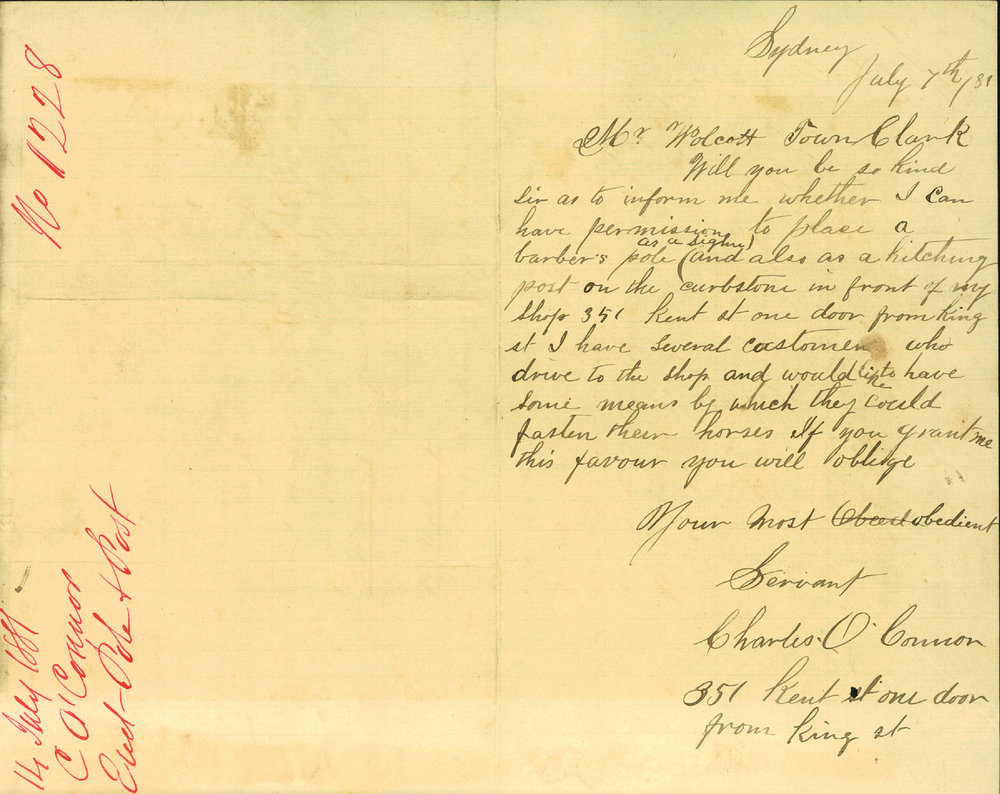 No 1228
14 July 1881
C O'Connor
Erect - Pole & Post
Sydney
July 7th /81
Mr. Wolcott Town Clark
Will you be so kind
sir as to inform me whether I can
have permission to plase a
as a sighn)
barber's pole (and also as a hitching
post on the curbstone in front of my
shop 351 Kent st one door from King
st I have several customers who
drive to the shop and would like to have
some means by which they could
fasten their horses If you grant me
this favour you will oblige
Your most obedient
Servant
Charles O'Connor
351 Kent st one door
from King st